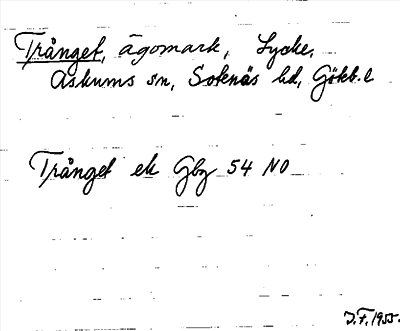 Trånget, ägomark, Lycke,
Askums sn, Sotenäs hd, Götb. l
Trånget ek Gbg 54 NO
J.F. 1955.